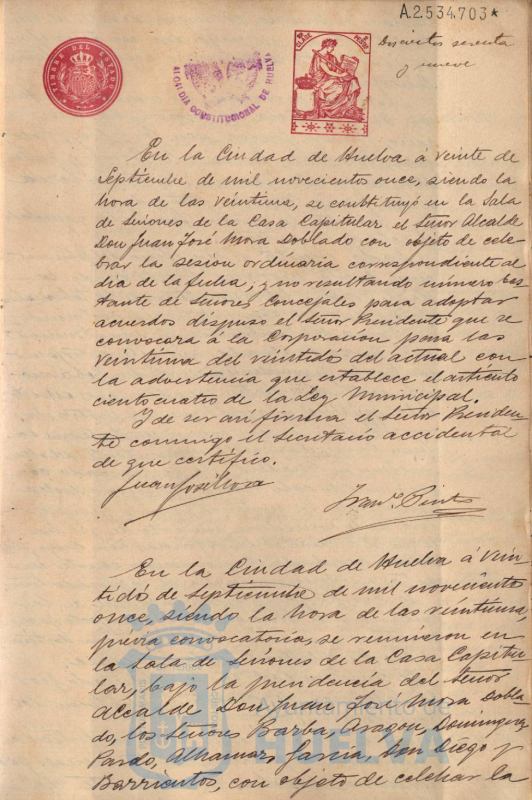 A.2.534.703★
Doscientos sesenta
y nueve
TIMBRE DEL ESTADO
ALCALDIA CONSTITUCIONAL DE HUELVA
En la Ciudad de Huelva á veinte de
Septiembre de mil novecientos once, siendo la
hora de las veintiuna, se constituyó en la Sala
de Sesiones de la Casa Capitular el Señor Alcalde
Don Juan José Mora Doblado con objeto de cele-
brar la sesion ordinaria correspondiente al
dia de la fecha; y no resultando número bas-
tante de Señores Concejales para adoptar
acuerdos dispuso el Señor Presidente que se
convocara á la Corporacion para las
veintiuna del veintidos del actual con
la advertencia que establece el artículo
ciento cuatro de la Ley Municipal.
Y de ser asi firma el Señor Presiden-
te conmigo el Secretario accidental
de que certifico.
Juan José Mora
Franco. Pinto
En la Ciudad de Huelva á vein-
tidós de Septiembre de mil novecientos
once, siendo la hora de las veintiuna,
previa convocatoria, se reunieron en
la Sala de Sesiones de la Casa Capitu-
lar, bajo la presidencia del Señor
Alcalde Don Juan José Mora Dobla-
do, los Señores Barba, Aragon, Dominguez
Pardo, Alhamar, Garcia, Don Diego y
Barrientos, con objeto de celebrar la
Ayuntamiento de
HUELVA